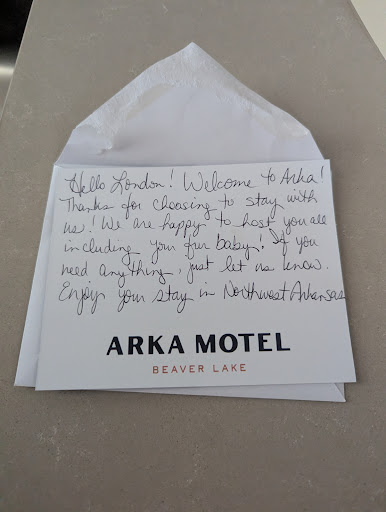 Hello London! Welcome to Arka!
Thanks for choosing to stay with
us! We are happy to host you all
including your fur baby! If you
need anything, just let us know.
Enjoy your stay in Northwest Arkansas
ARKA MOTEL
BEAVER LAKE